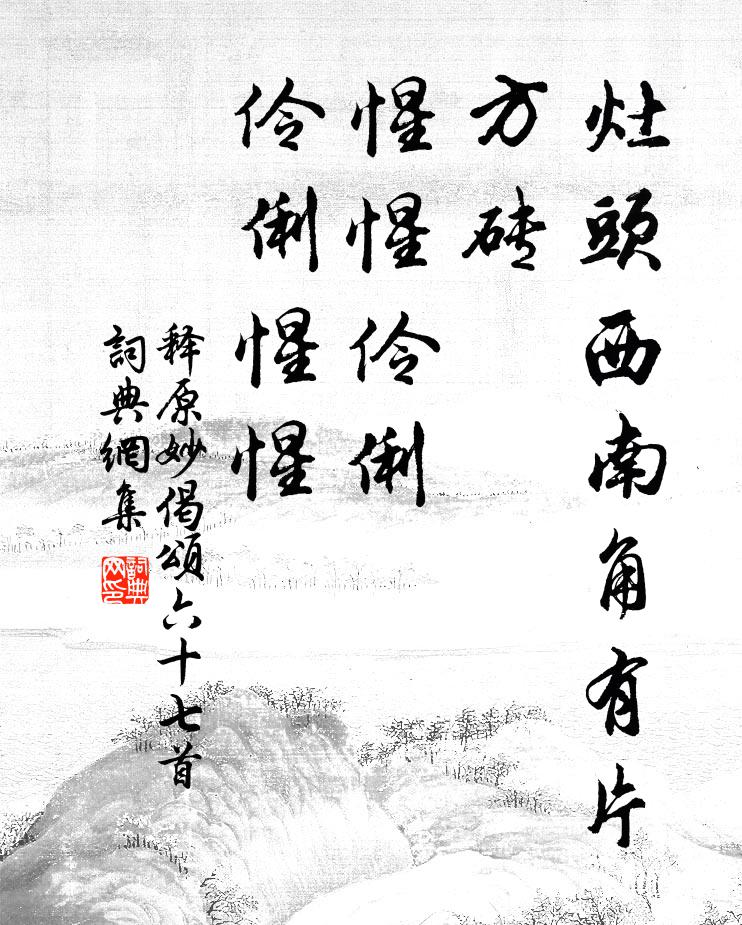 灶頭西南角有片
方磚
惺惺伶俐
伶俐惺惺
释原妙偈頌六十七首
詞典網集
詞典
网印